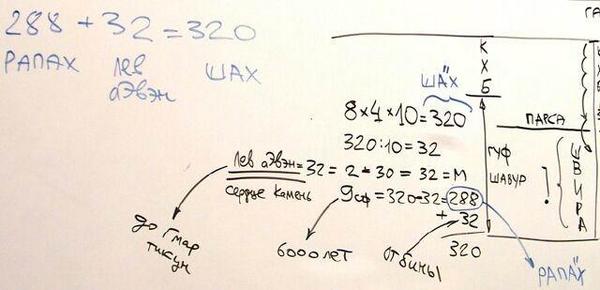 288 + 32 = 320
РАПАХ лев аЭвэн ШАХ
ГА
К Х Б
ША"Х
8×4×10=320
320:10=32
лев аЭвэн = 32 = 2 + 30 = 32 = М
сердце камень
9сф = 320-32=288
+ 32
320
ПАРСА
ГУФ
ШАВУР
!
ШВИРА
до Гмар
тикун
6000 лет
от бины
РАПА"Х